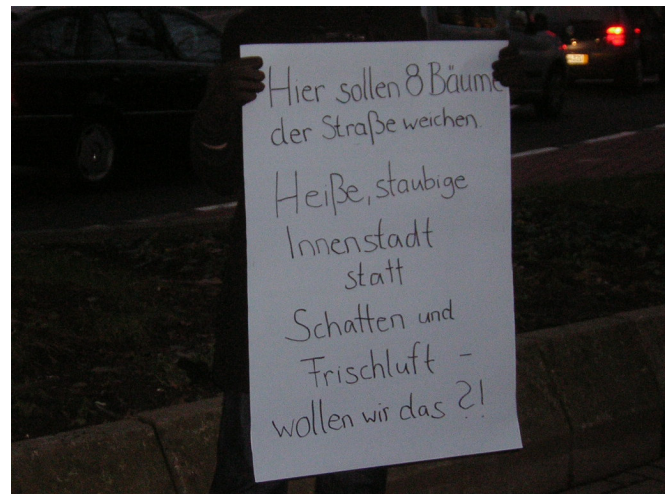 Hier sollen 8 Bäume
der Straße weichen.
Heiße, staubige
Innenstadt
statt
Schatten und
Frischluft -
wollen wir das ?!